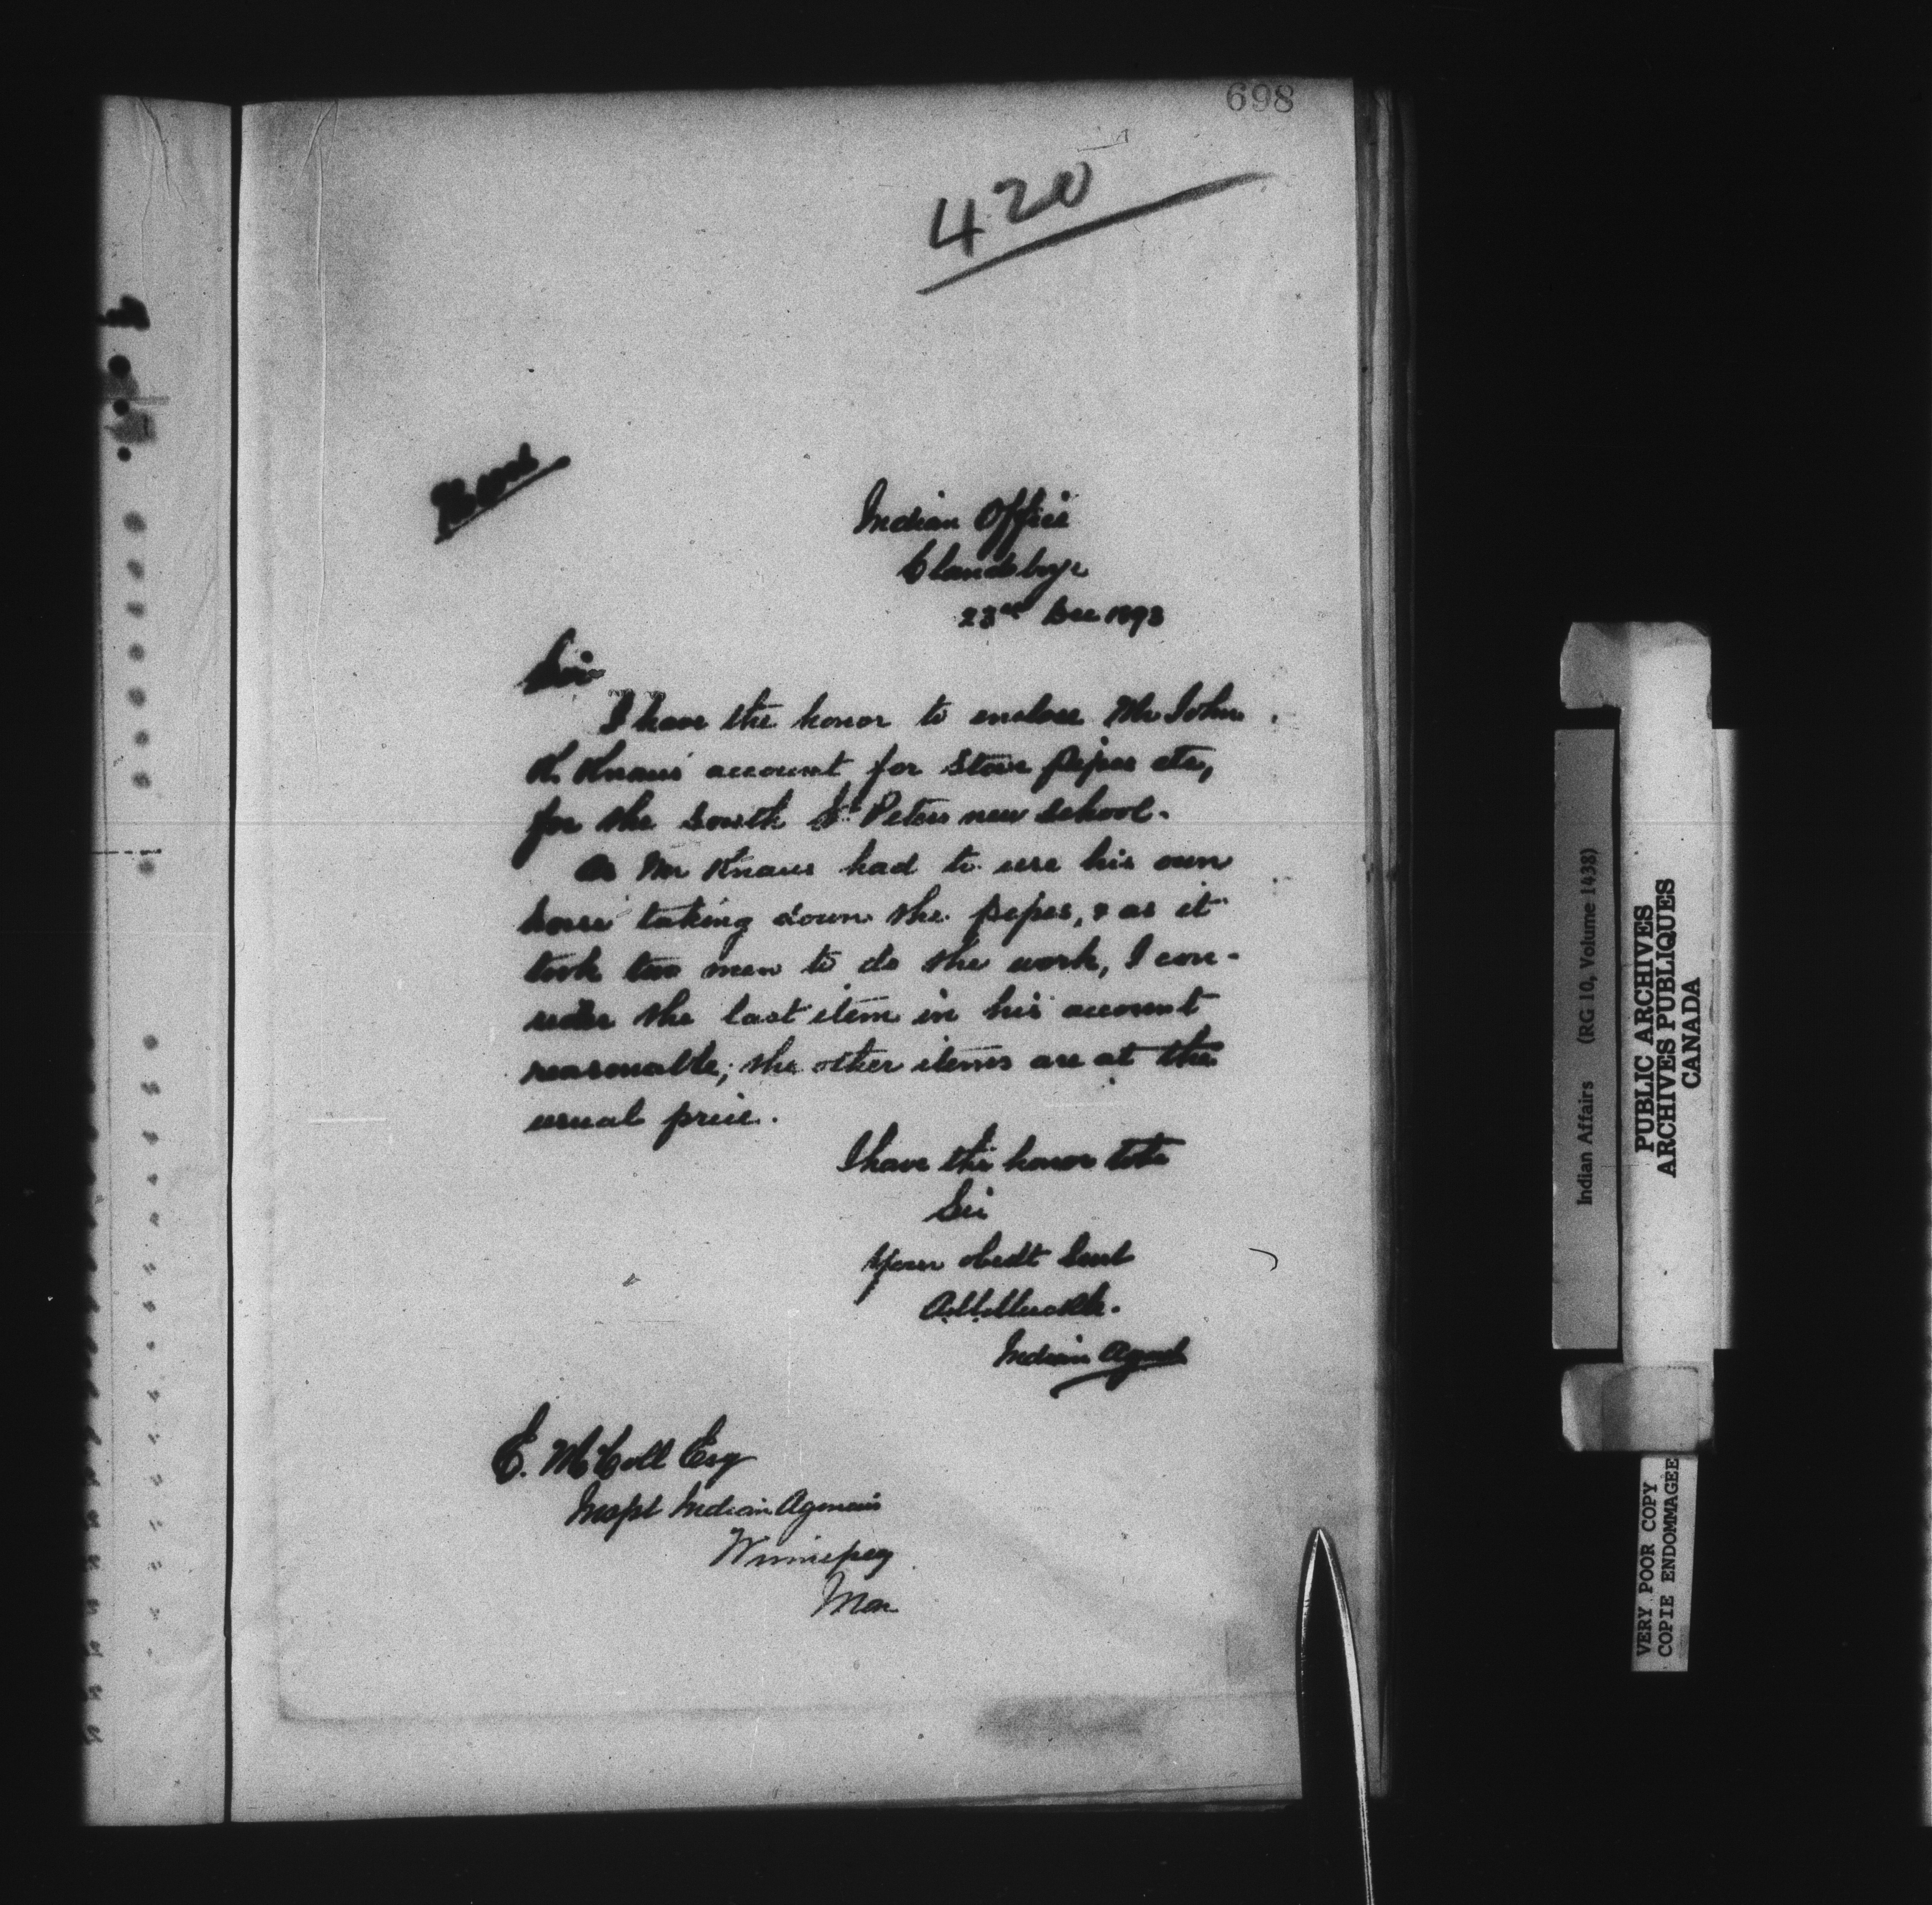 698
420
Indian Office
Clandeboye
23rd Dec 1893
Sir
I have the honor to enclose Mr John
K. Knaus' account for stove pipes etc,
for the South St Peters new school.
As Mr Knaus had to use his own
horse taking down the pipes, & as it
took two men to do the work, I con-
sider the last item in his account
reasonable; the other items are at the
usual price.
I have the honor to be
Sir
Your obedt Servt
Indian Agent
E. McColl Esq
Inspt Indian Agencies
Winnipeg
Man
Indian Affairs (RG 10, Volume 1438)
PUBLIC ARCHIVES
ARCHIVES PUBLIQUES
CANADA
VERY POOR COPY
COPIE ENDOMMAGEE